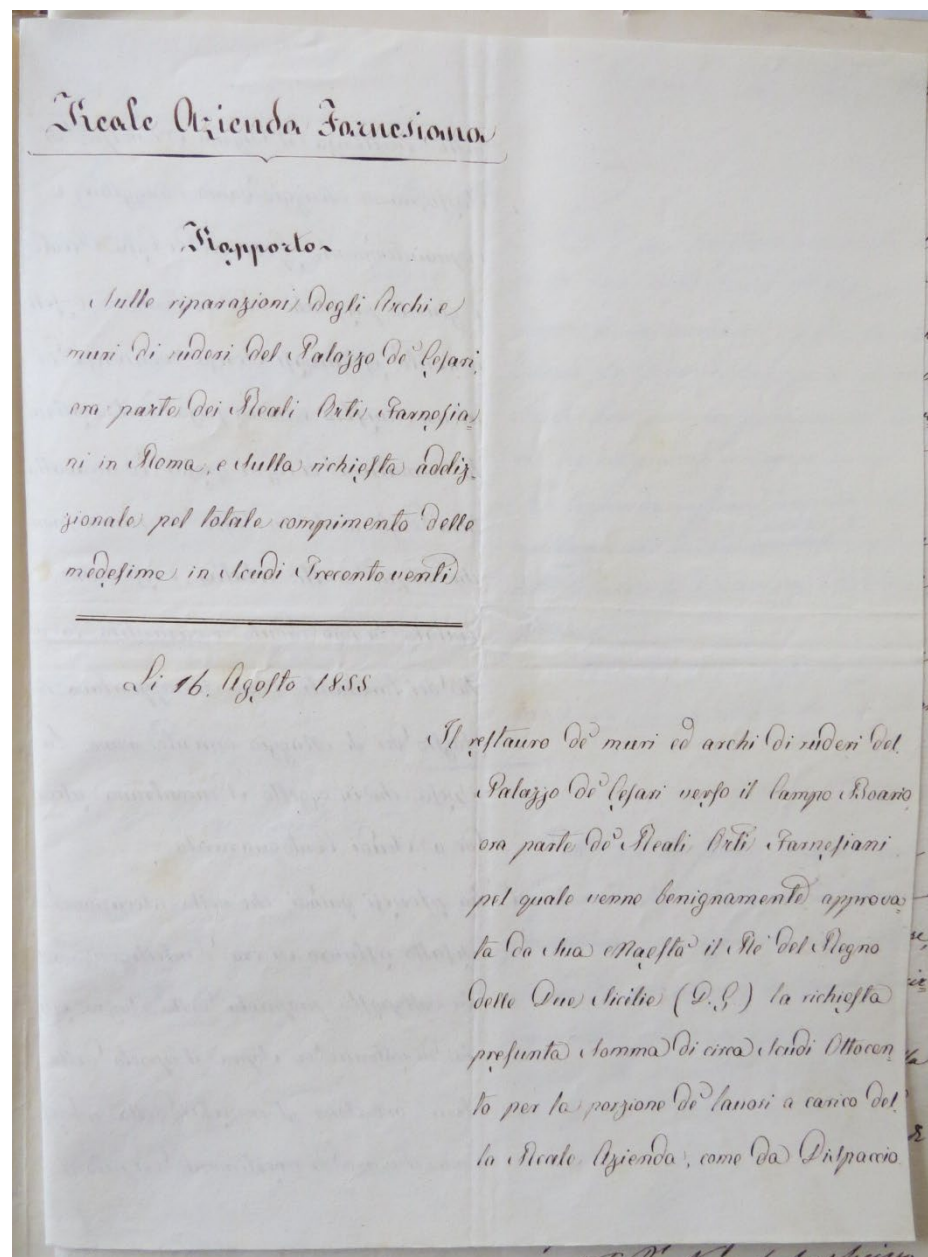 Reale Azienda Farnesiana
Rapporto
Sulle riparazioni degli Archi e
muri di ruderi del Palazzo de' Cesari,
ora parte dei Reali Orti Farnesia=
ni in Roma, e sulla richiesta addiz=
zionale pel totale compimento delle
medesime in Scudi Trecento venti
Li 16. Agosto 1855
Il restauro de' muri ed archi di ruderi del
Palazzo de' Cesari verso il Campo Boario
ora parte de' Reali Orti Farnesiani
pel quale venne benignamente approva=
ta da Sua Maestà il Re del Regno
delle Due Sicilie (D.G) la richiesta
presunta Somma di circa Scudi Ottocen
to per la porzione de' lavori a carico del
la Reale Azienda, come da Dispaccio